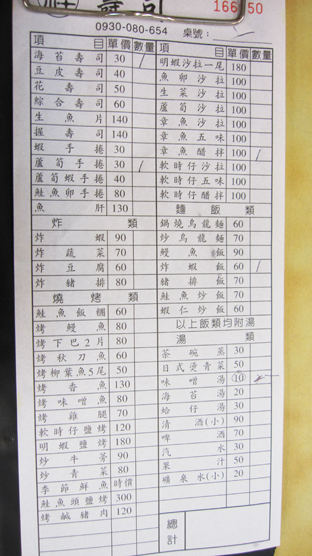 壽司
166 50
0930-080-654 桌號:
項 目 單價 數量
海苔壽司 30 /
豆皮壽司 40
花壽司 50
綜合壽司 60
生魚片 140
握壽司 140
蝦手捲 30
蘆筍手捲 30 /
蘆筍蝦手捲 40
鮭魚卵手捲 80
魚肝 130
炸 類
炸蝦 90
炸蔬菜 70
炸豆腐 60
炸豬排 80
燒烤 類
鮭魚飯糰 60
烤鰻魚 80
烤下巴2片 80
烤秋刀魚 60
烤柳葉魚5尾 50
烤香魚 130
烤味噌魚 80
烤雞腿 70
軟時仔鹽烤 120
明蝦鹽烤 180
炒牛蒡 90
炒青菜 80
季節鮮魚 時價
鮭魚頭鹽烤 300
烤鹹豬肉 120
項 目 單價 數量
明蝦沙拉一尾 180
魚卵沙拉 100
生菜沙拉 100
蘆筍沙拉 100
章魚沙拉 100
章魚五味 100
章魚醋拌 100 /
軟時仔沙拉 100
軟時仔五味 100
軟時仔醋拌 100
麵飯 類
鍋燒烏龍麵 60
炒烏龍麵 70
鰻魚飯 90
炸蝦飯 60 /
豬排飯 70
鮭魚炒飯 70
蝦仁炒飯 60
以上飯類均附湯
湯 類
茶碗蒸 30
日式燙青菜 50
味噌湯 10
海苔湯 20
蛤仔湯 30
清酒(小) 90
啤酒 70
汽水 30
果汁 50
礦泉水(小) 20
總計